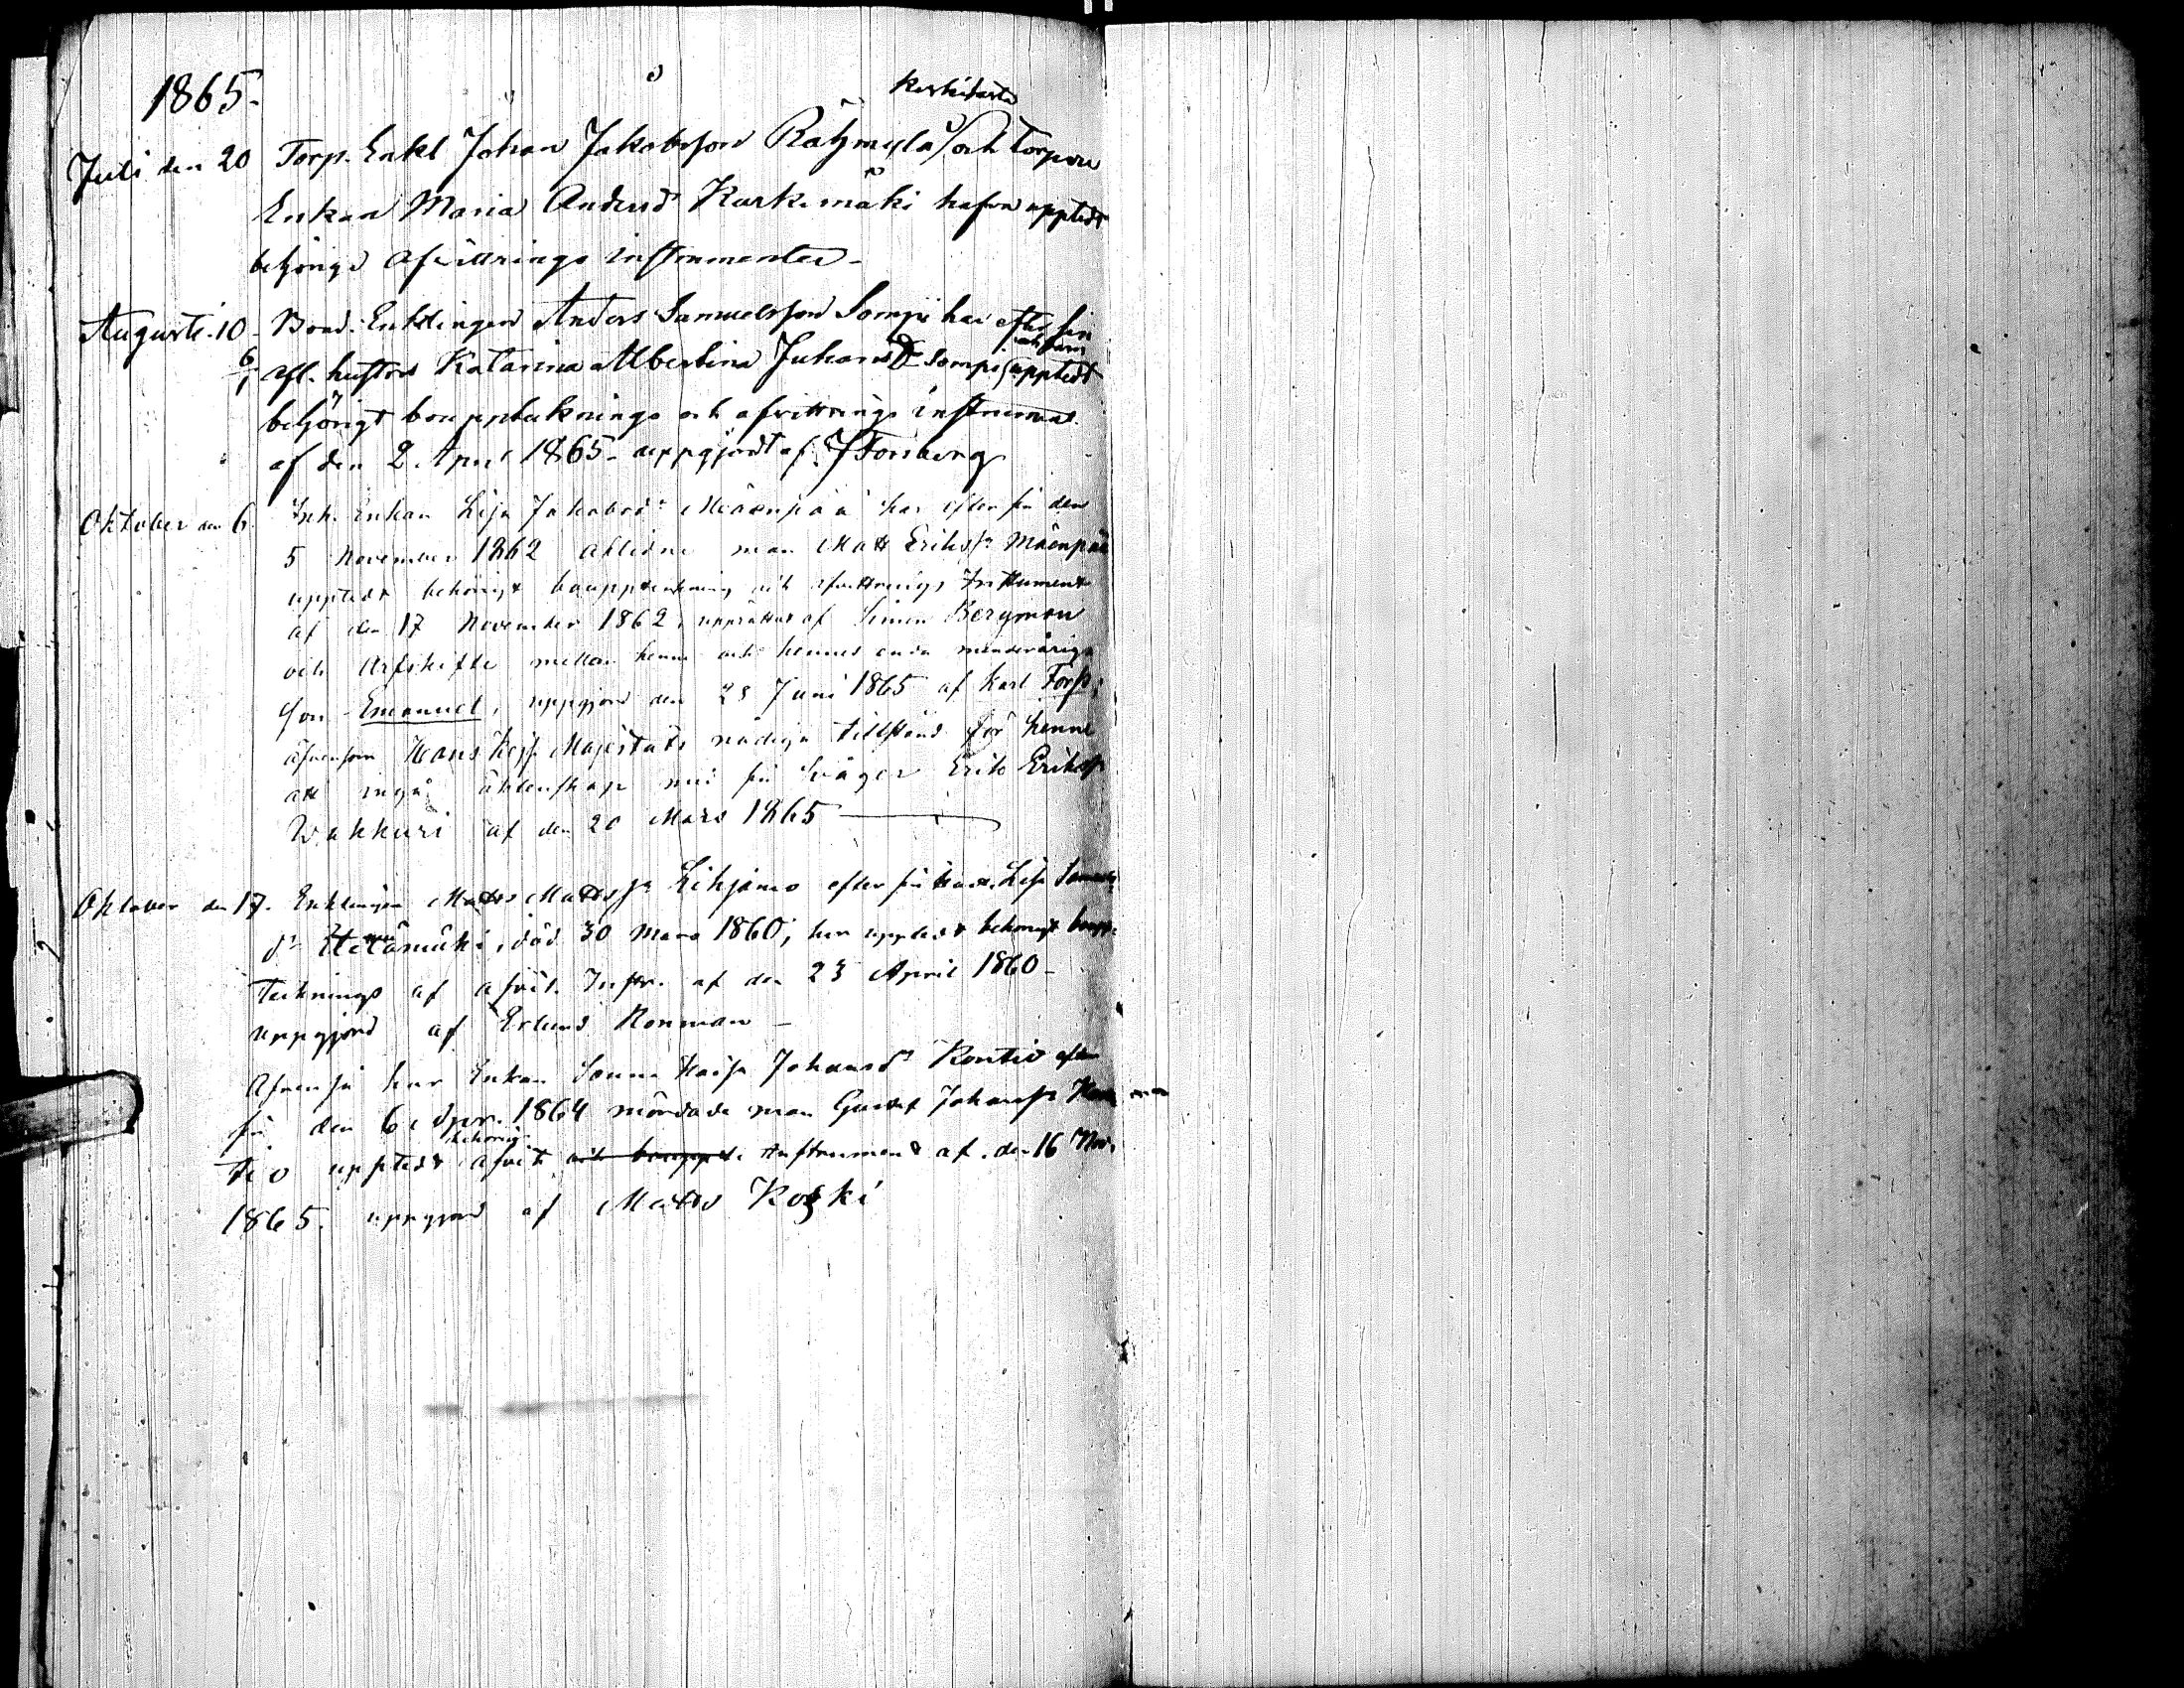 1865.
Juli den 20 Torp. Enkl Johan Jakobsson och Torpare
Enkan Maria Andersd Kurkimäki hafva upptedt
behörige afvittrings instrumenter -
Augusti 10 - Bond. Enklingen Anders Samuelsson Sompi har efter sin
afl. hustru Katarina Albertina Juhans Dr Sompi upptedt
behörigt bouppteknings och afvittrings instrument
af den 2 April 1865 - uppgjordt af J Forsberg
Oktober den 6. Inh. Enkan Lisa Jakobsdr Mäenpää har efter sin den
5 November 1862 aflidne man Matt Erikssn Mäenpää
upptedt behörigt bouppteckning och afvittrings Instrument
af den 17 November 1862, upprättat af Simon Bergman
och Arfskifte mellan henne och hennes enda minderåriga
son Emanuel, uppgjord den 28 Juni 1865 af Karl Forss;
äfvensom Hans Kejs. Majestäts nådiga tillstånd för henne
att ingå äktenskap med sin svåger Erik Eriksss
Wakkuri af den 20 Mars 1865
Oktober den 17. Enklingen Matts Mattssn Lihjamo efter sin hustru Lisa
dr död 30 Mars 1860, har upptedt behörigt boupp-
tecknings af afvit. Instr. af den 23 April 1860 -
uppgjord af Erlund Konman -
Äfvenså har Enkan Sanna Kajsa Johansdr Kontio efter
sin den 6 1864 mördade man Gustaf Johanss Kon
tio upptedt behörig afvit och bouppt. instrument af den 16 Nov.
1865. uppgjord af Matts Koski